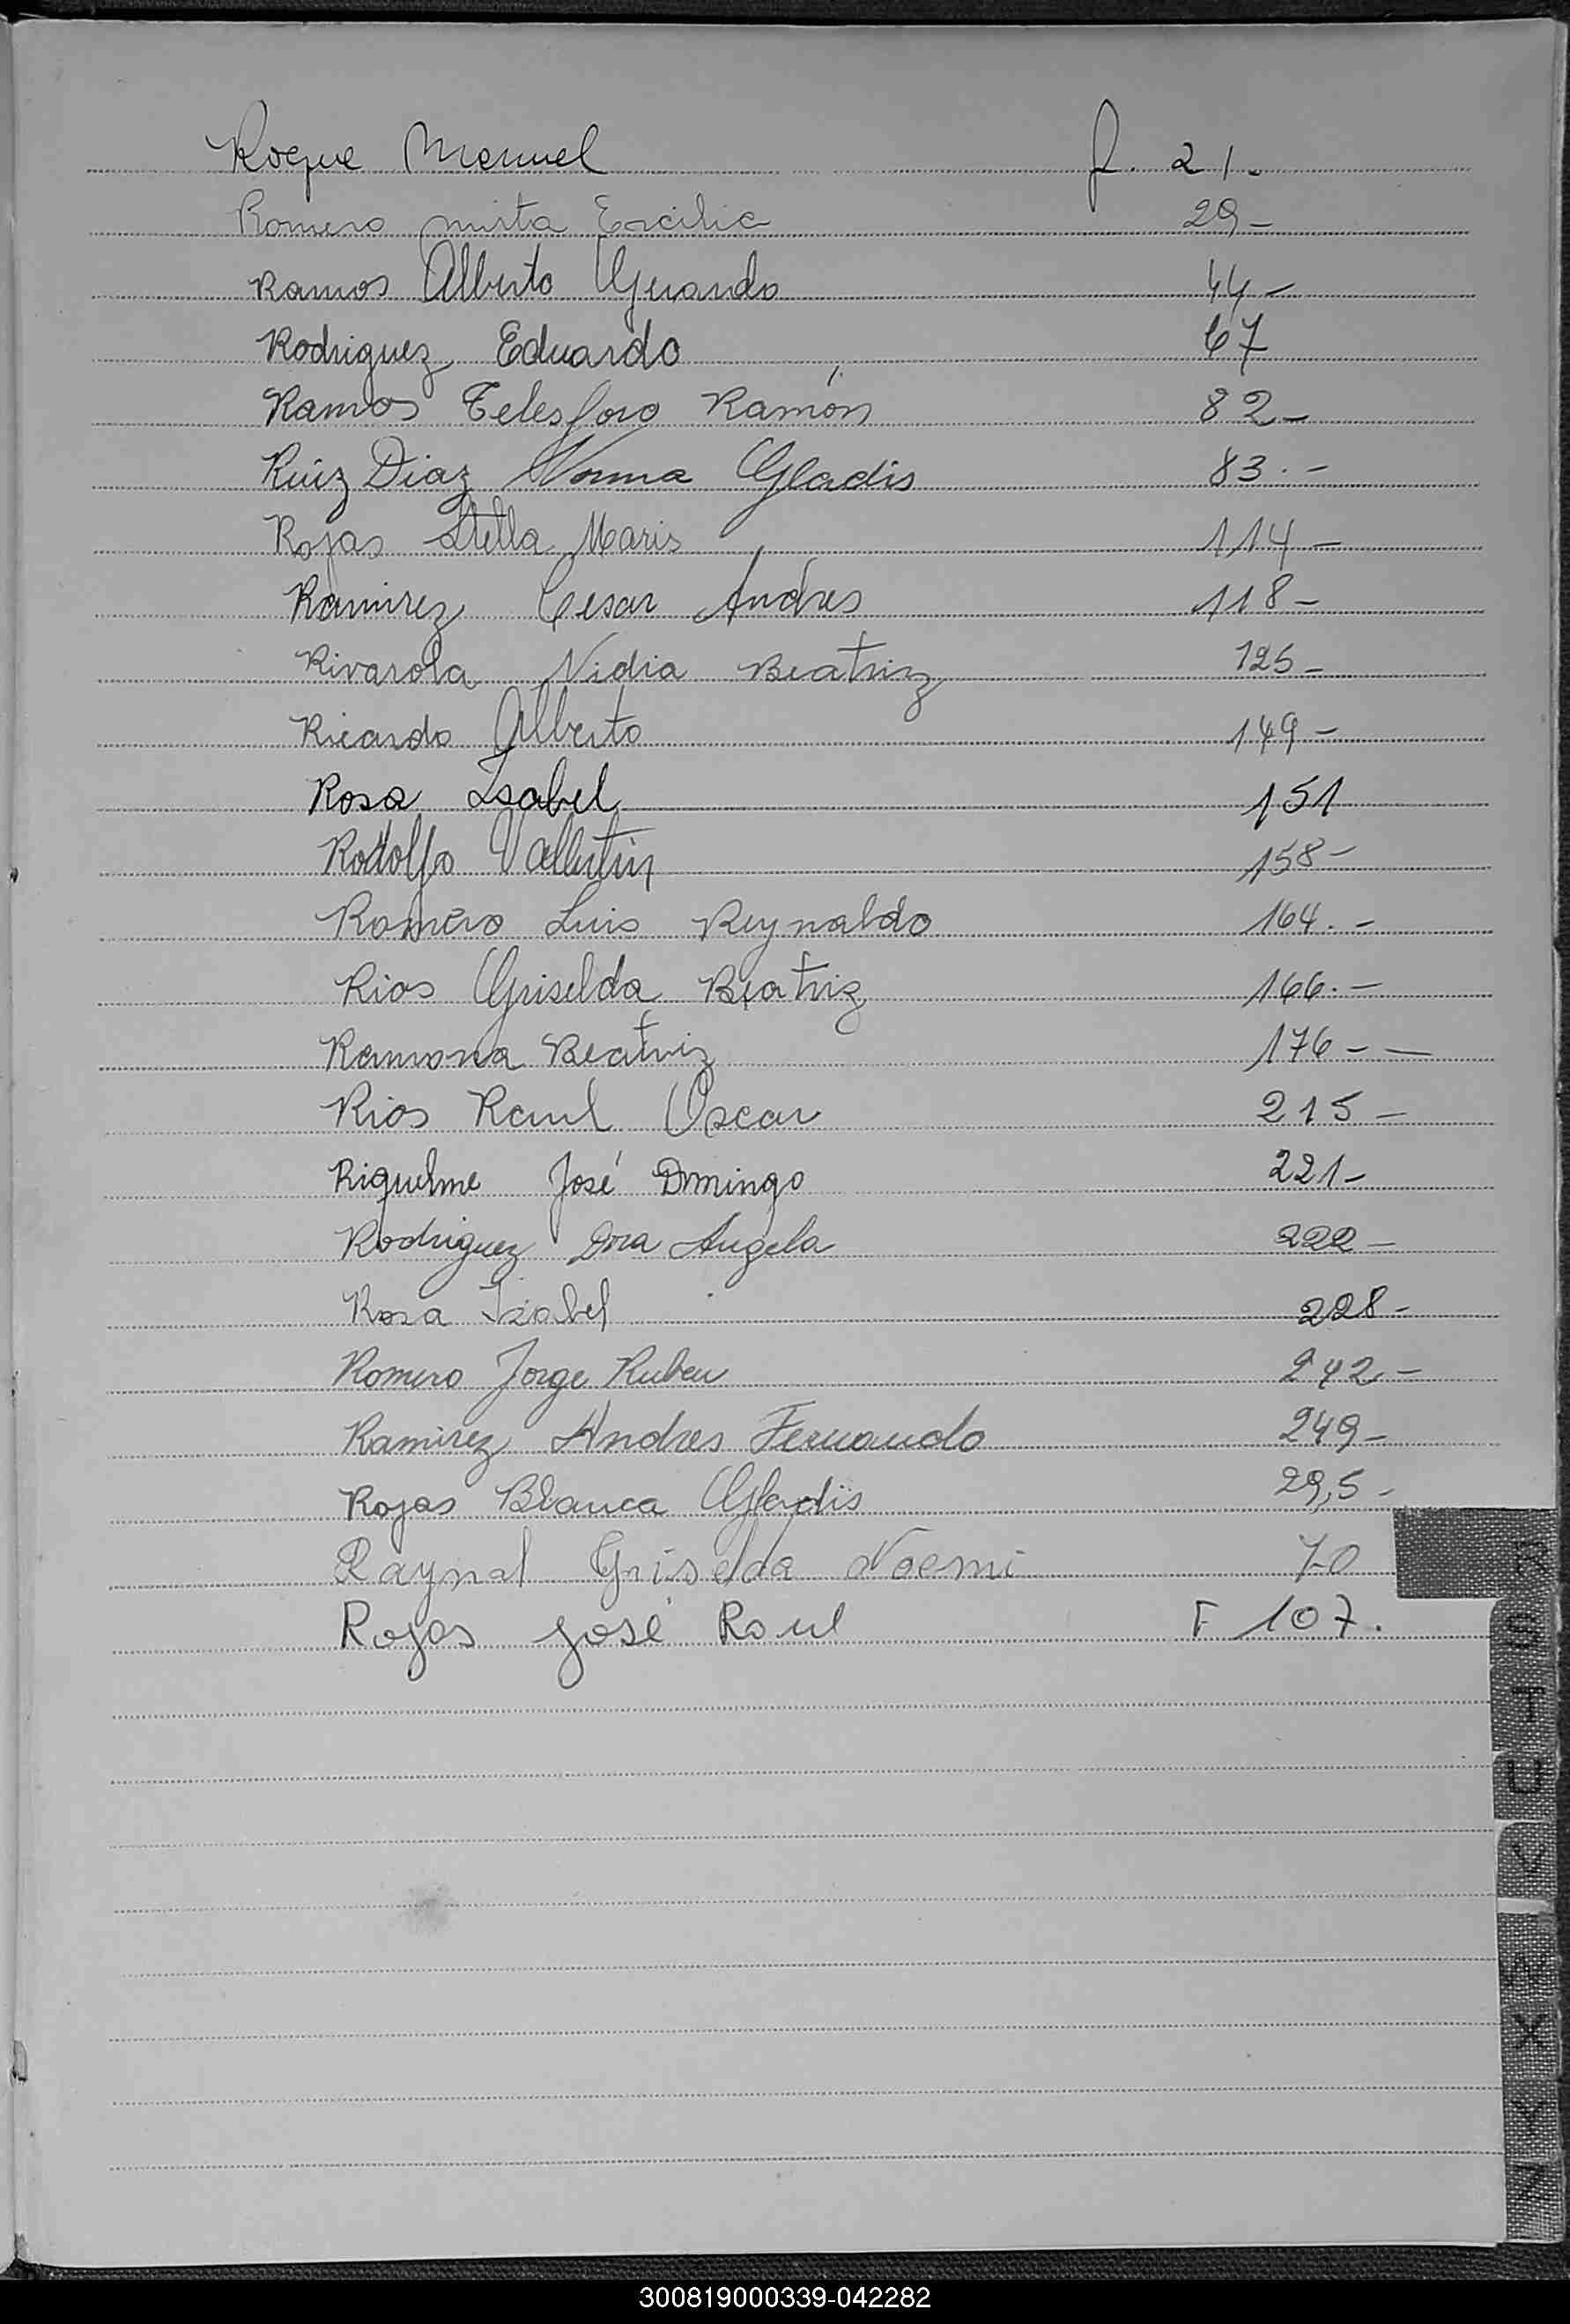 Roque Manuel f. 21.
Romero mirta Ercilia 29-
Ramos Alberto Gerardo 44-
Rodriguez Eduardo 67
Ramos Telesforo Ramón 82-
Ruiz Diaz Norma Gladis 83.-
Rojas Stella Maris 114-
Ramirez Cesar Andres 118-
Rivarola Nidia Beatriz 125-
Ricardo Alberto 149-
Rosa Isabel 151
Rodolfo 158-
Romero Luis Reynaldo 164.-
Rios Griselda Beatriz 166.-
Ramona Beatriz 176--
Rios Raul Oscar 215-
Riquelme José Domingo 221-
Rodriguez Dora Angela 222-
Rosa Isabel 228-
Romero Jorge Ruben 242-
Ramirez Andres Fernando 249-
Rojas Blanca Gladis 29,5-
Raynal Griselda Noemi 70
Rojas José Raul F 107.
R
S
T
U
V
W
X
Y
Z
300819000339-042282